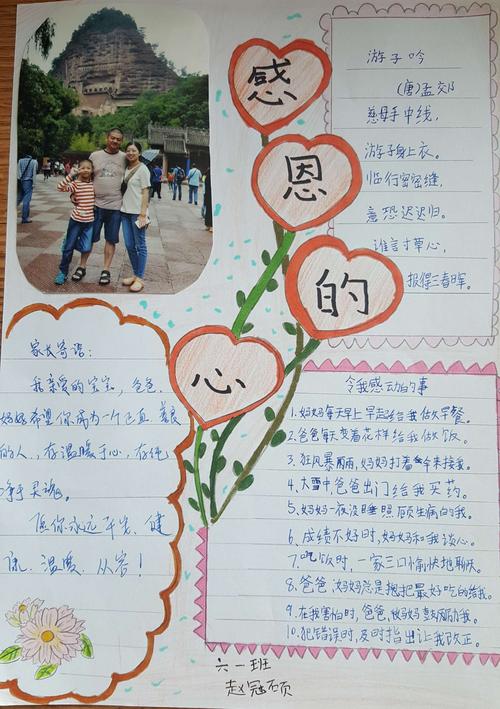 感
恩
的
心
游子吟
(唐)孟郊
慈母手中线，
游子身上衣。
临行密密缝，
意恐迟迟归。
谁言寸草心，
报得三春晖。
家长寄语：
我亲爱的宝宝，爸爸、
妈妈希望你成为一个正直、善良
的人，在温暖于心，在纯
净于灵魂。
愿你永远平安、健
康、温暖、从容！
令我感动的事
1.妈妈每天早上早起给我做早餐。
2.爸爸每天变着花样给我做饭。
3.狂风暴雨，妈妈打着伞来接我。
4.大雪中，爸爸出门给我买药。
5.妈妈一夜没睡照顾生病的我。
6.成绩不好时，妈妈和我谈心。
7.吃饭时，一家三口愉快地聊天。
8.爸爸、妈妈总是把最好吃的给我。
9.在我害怕时，爸爸、妈妈鼓励我。
10.犯错误时，及时指出让我改正。
六一班
赵冠硕